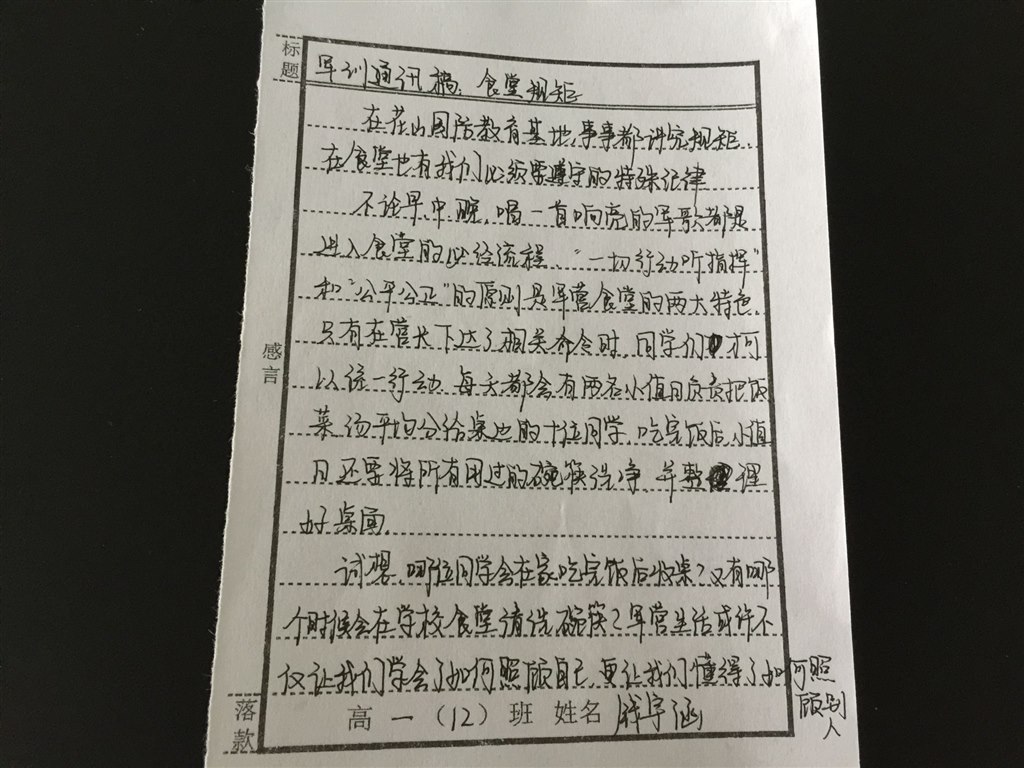 标题
军训通讯稿：食堂规矩
在花山国防教育基地，事事都讲究规矩，
在食堂也有我们必须要遵守的特殊纪律
不论早、中、晚，唱一首响亮的军歌都是
进入食堂的必经流程，“一切行动听指挥”
和“公平公正”的原则是军营食堂的两大特色，
只有在营长下达了相关命令时，同学们才可
以统一行动，每天都会有两名小值日负责把饭
菜汤平均分给桌边的十位同学，吃完饭后，小值
日还要将所有用过的碗筷洗净，并整理
好桌面，
感言
试想，哪位同学会在家吃完饭后收桌？又有哪
个时候会在学校食堂清洗碗筷？军营生活或许不
仅让我们学会了如何照顾自己，更让我们懂得了如何照
顾别人
落款
高一（12）班 姓名 钱宇涵